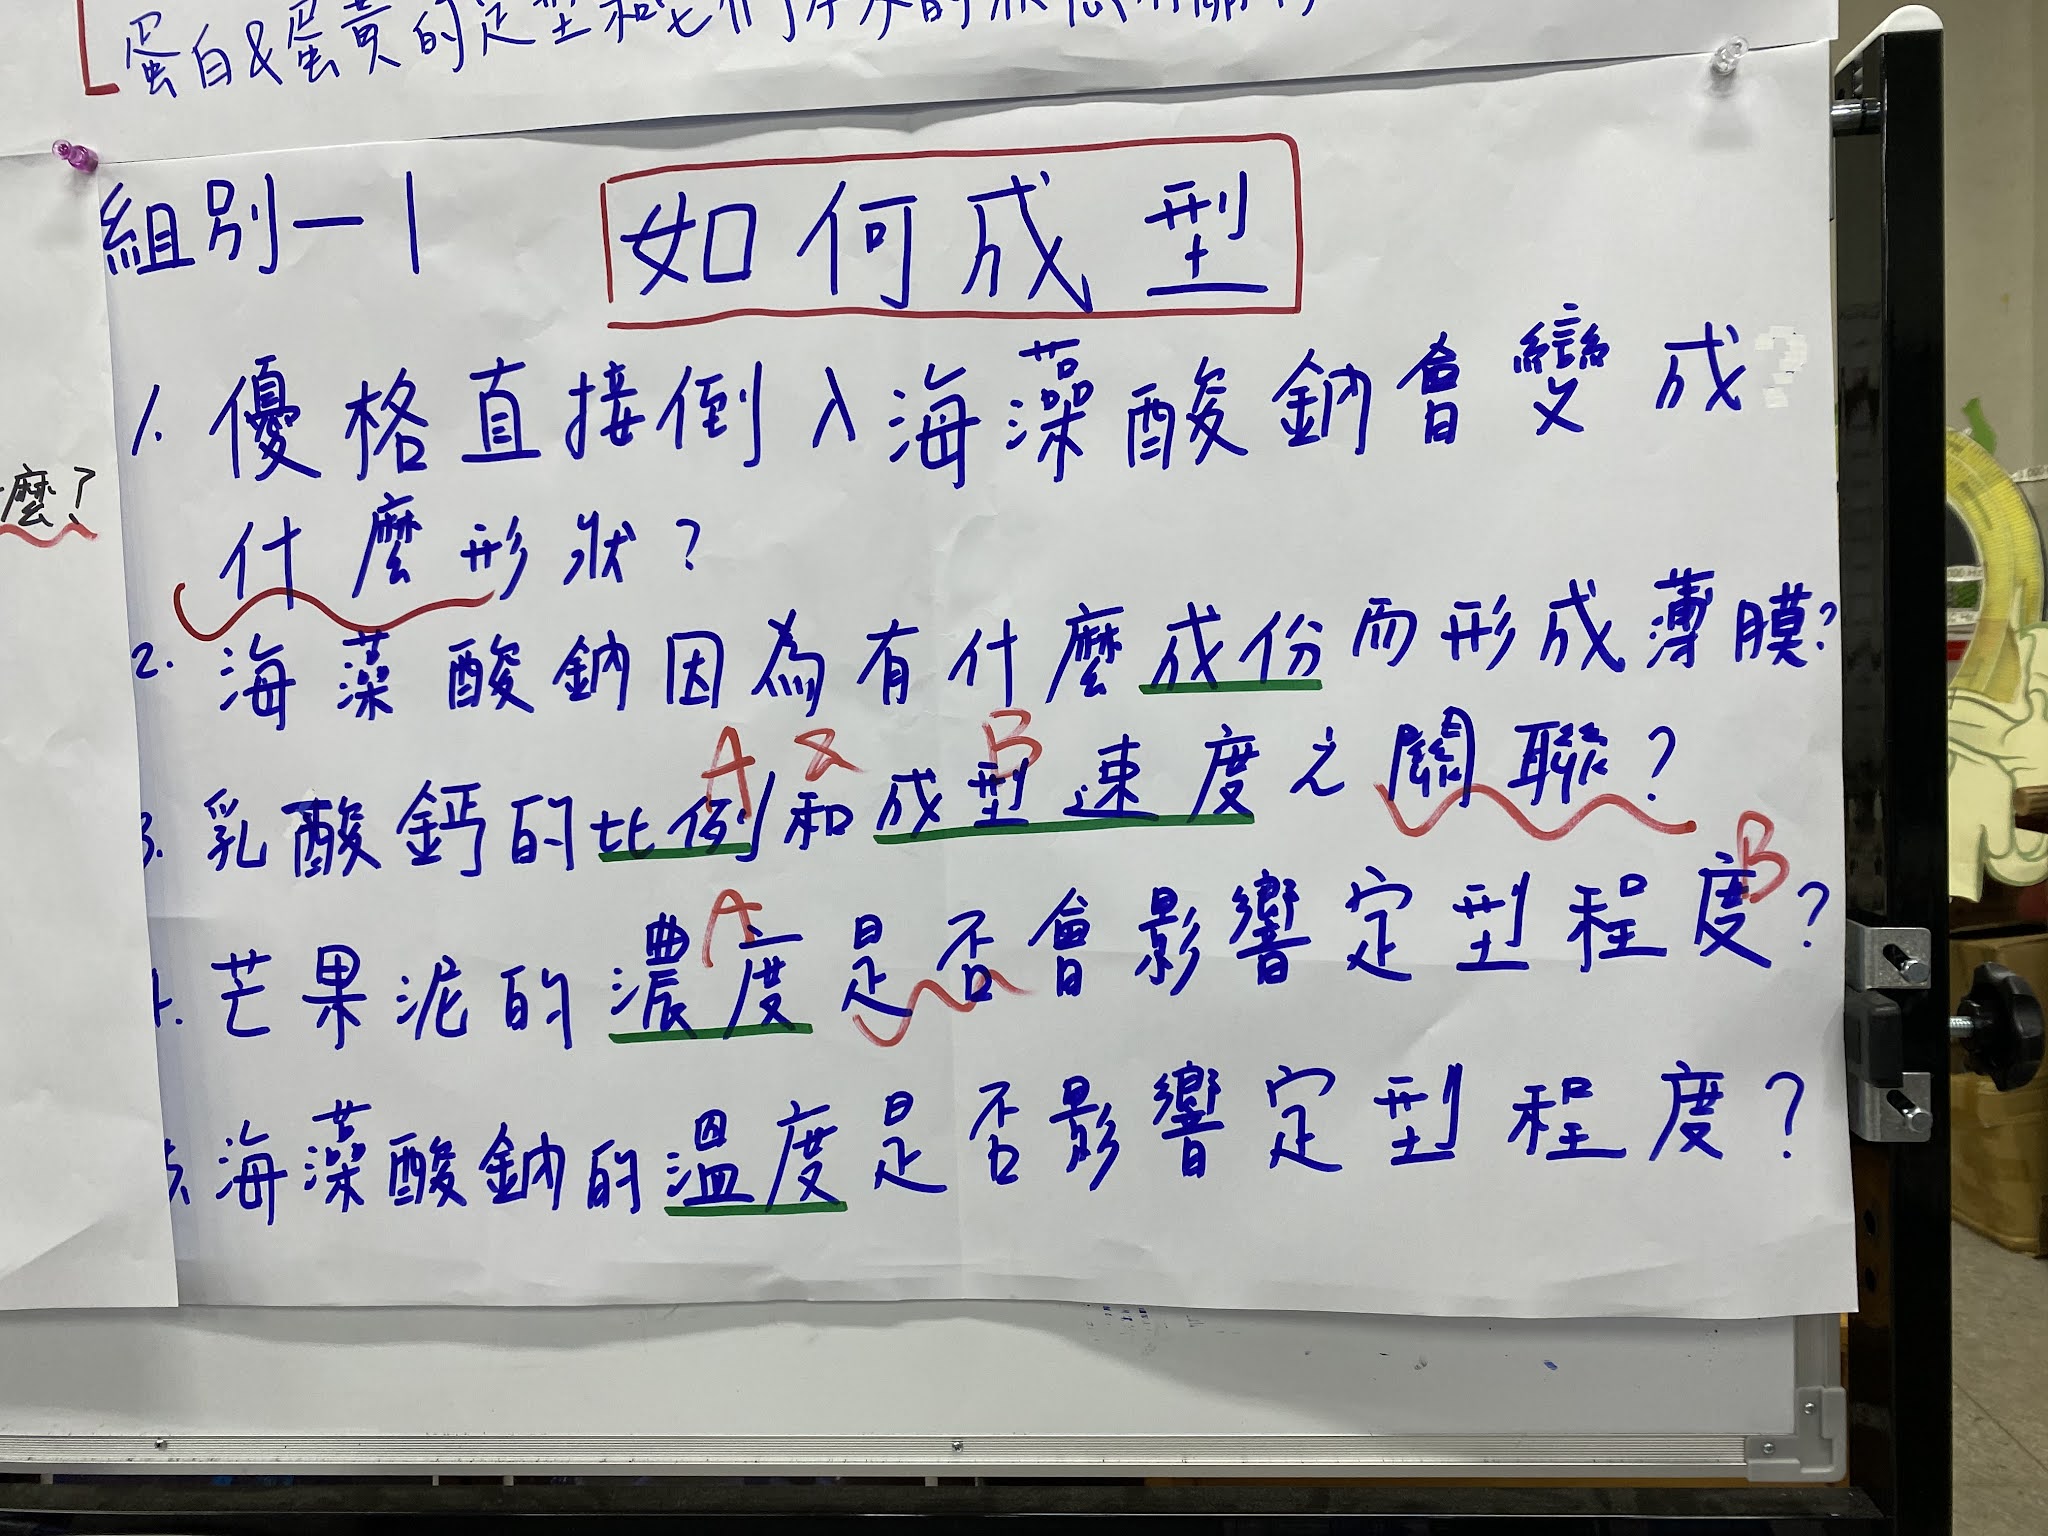 蛋白&蛋黃的定型和它們
麼?
組別一1 如何成型
1. 優格直接倒入海藻酸鈉會變成
什麼形狀?
2. 海藻酸鈉因為有什麼成份而形成薄膜?
A & B
3. 乳酸鈣的比例和成型速度之關聯?
A B
4. 芒果泥的濃度是否會影響定型程度?
5. 海藻酸鈉的溫度是否影響定型程度?